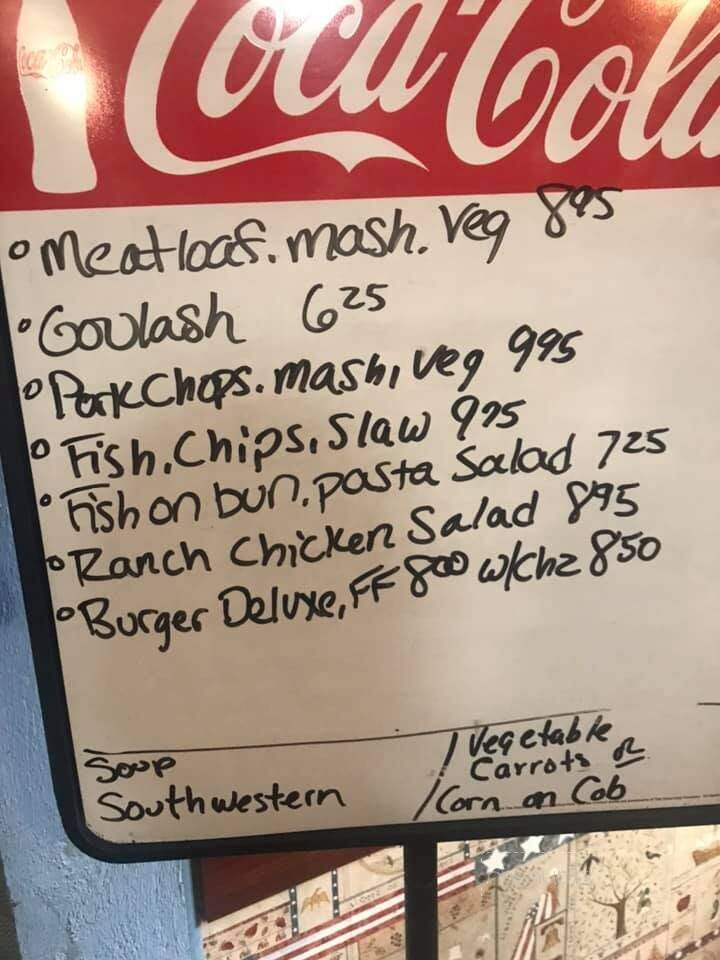 Coca-Cola
Coca-Cola
° Meatloaf. mash. Veg 895
° Goulash 625
° Pork Chops. mash, veg 995
° Fish, Chips, Slaw 995
° Fish on bun, pasta Salad 725
° Ranch Chicken Salad 895
° Burger Deluxe, FF 800 w/chz 850
Soup
Southwestern
/ Vegetable
Carrots or
/ Corn on Cob